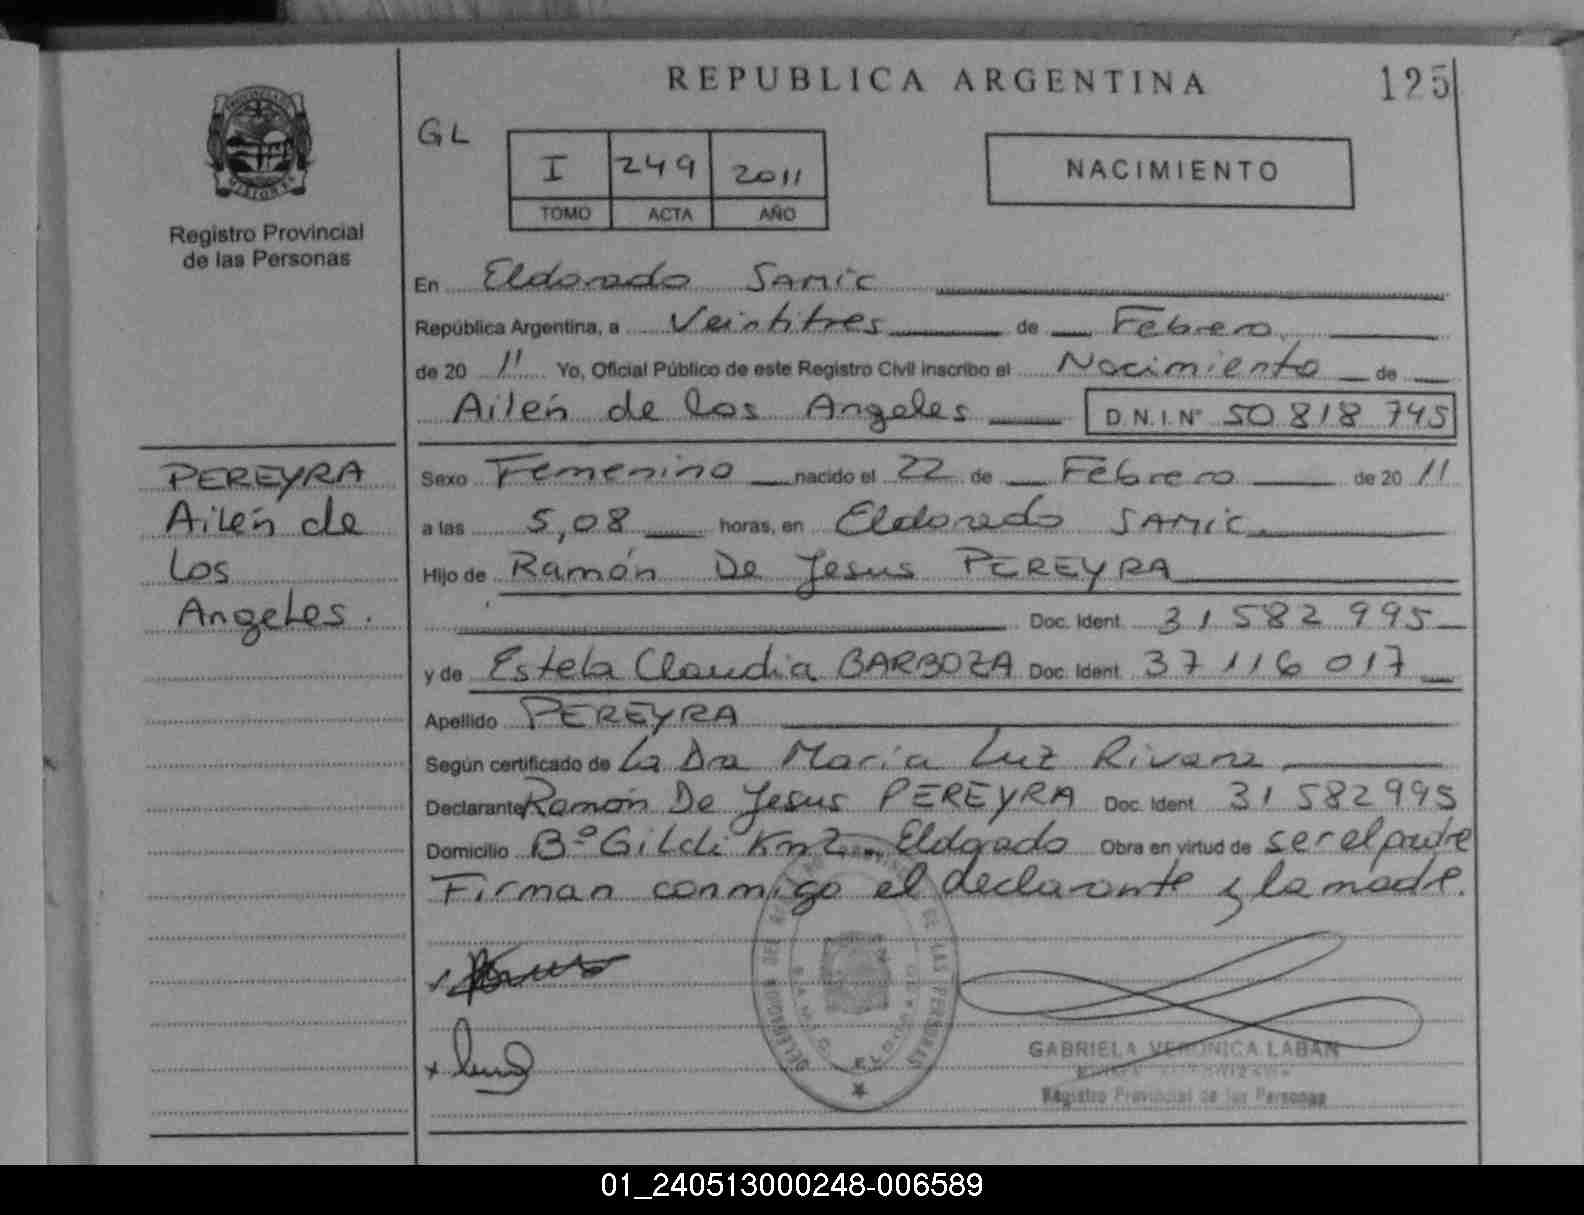 REPUBLICA ARGENTINA
125
GL
I 249 2011
TOMO ACTA AÑO
NACIMIENTO
Registro Provincial
de las Personas
En Eldorado SAMIC
República Argentina, a Veintitres de Febrero
de 20 11 Yo, Oficial Público de este Registro Civil inscribo el Nacimiento de
Ailén de los Angeles D.N.I.Nº 50 818 745
PEREYRA
Ailén de
Los
Angeles.
Sexo Femenino nacido el 22 de Febrero de 20 11
a las 5,08 horas, en Eldorado SAMIC
Hijo de Ramón De Jesus PEREYRA
Doc. Ident. 31 582 995
y de Estela Claudia BARBOZA Doc. Ident. 37 116 017
Apellido PEREYRA
Según certificado de La Dra Maria Luz
Declarante Ramón De Jesus PEREYRA Doc. Ident. 31 582 995
Domicilio Bº Km 2 Eldorado Obra en virtud de ser el padre
Firman conmigo el declarante y la madre.
DELEGACION DEL REGISTRO PROVINCIAL DE LAS PERSONAS
S.A.M.I.C. ELDORADO
GABRIELA VERONICA LABAN
Registro Provincial de las Personas
01_240513000248-006589